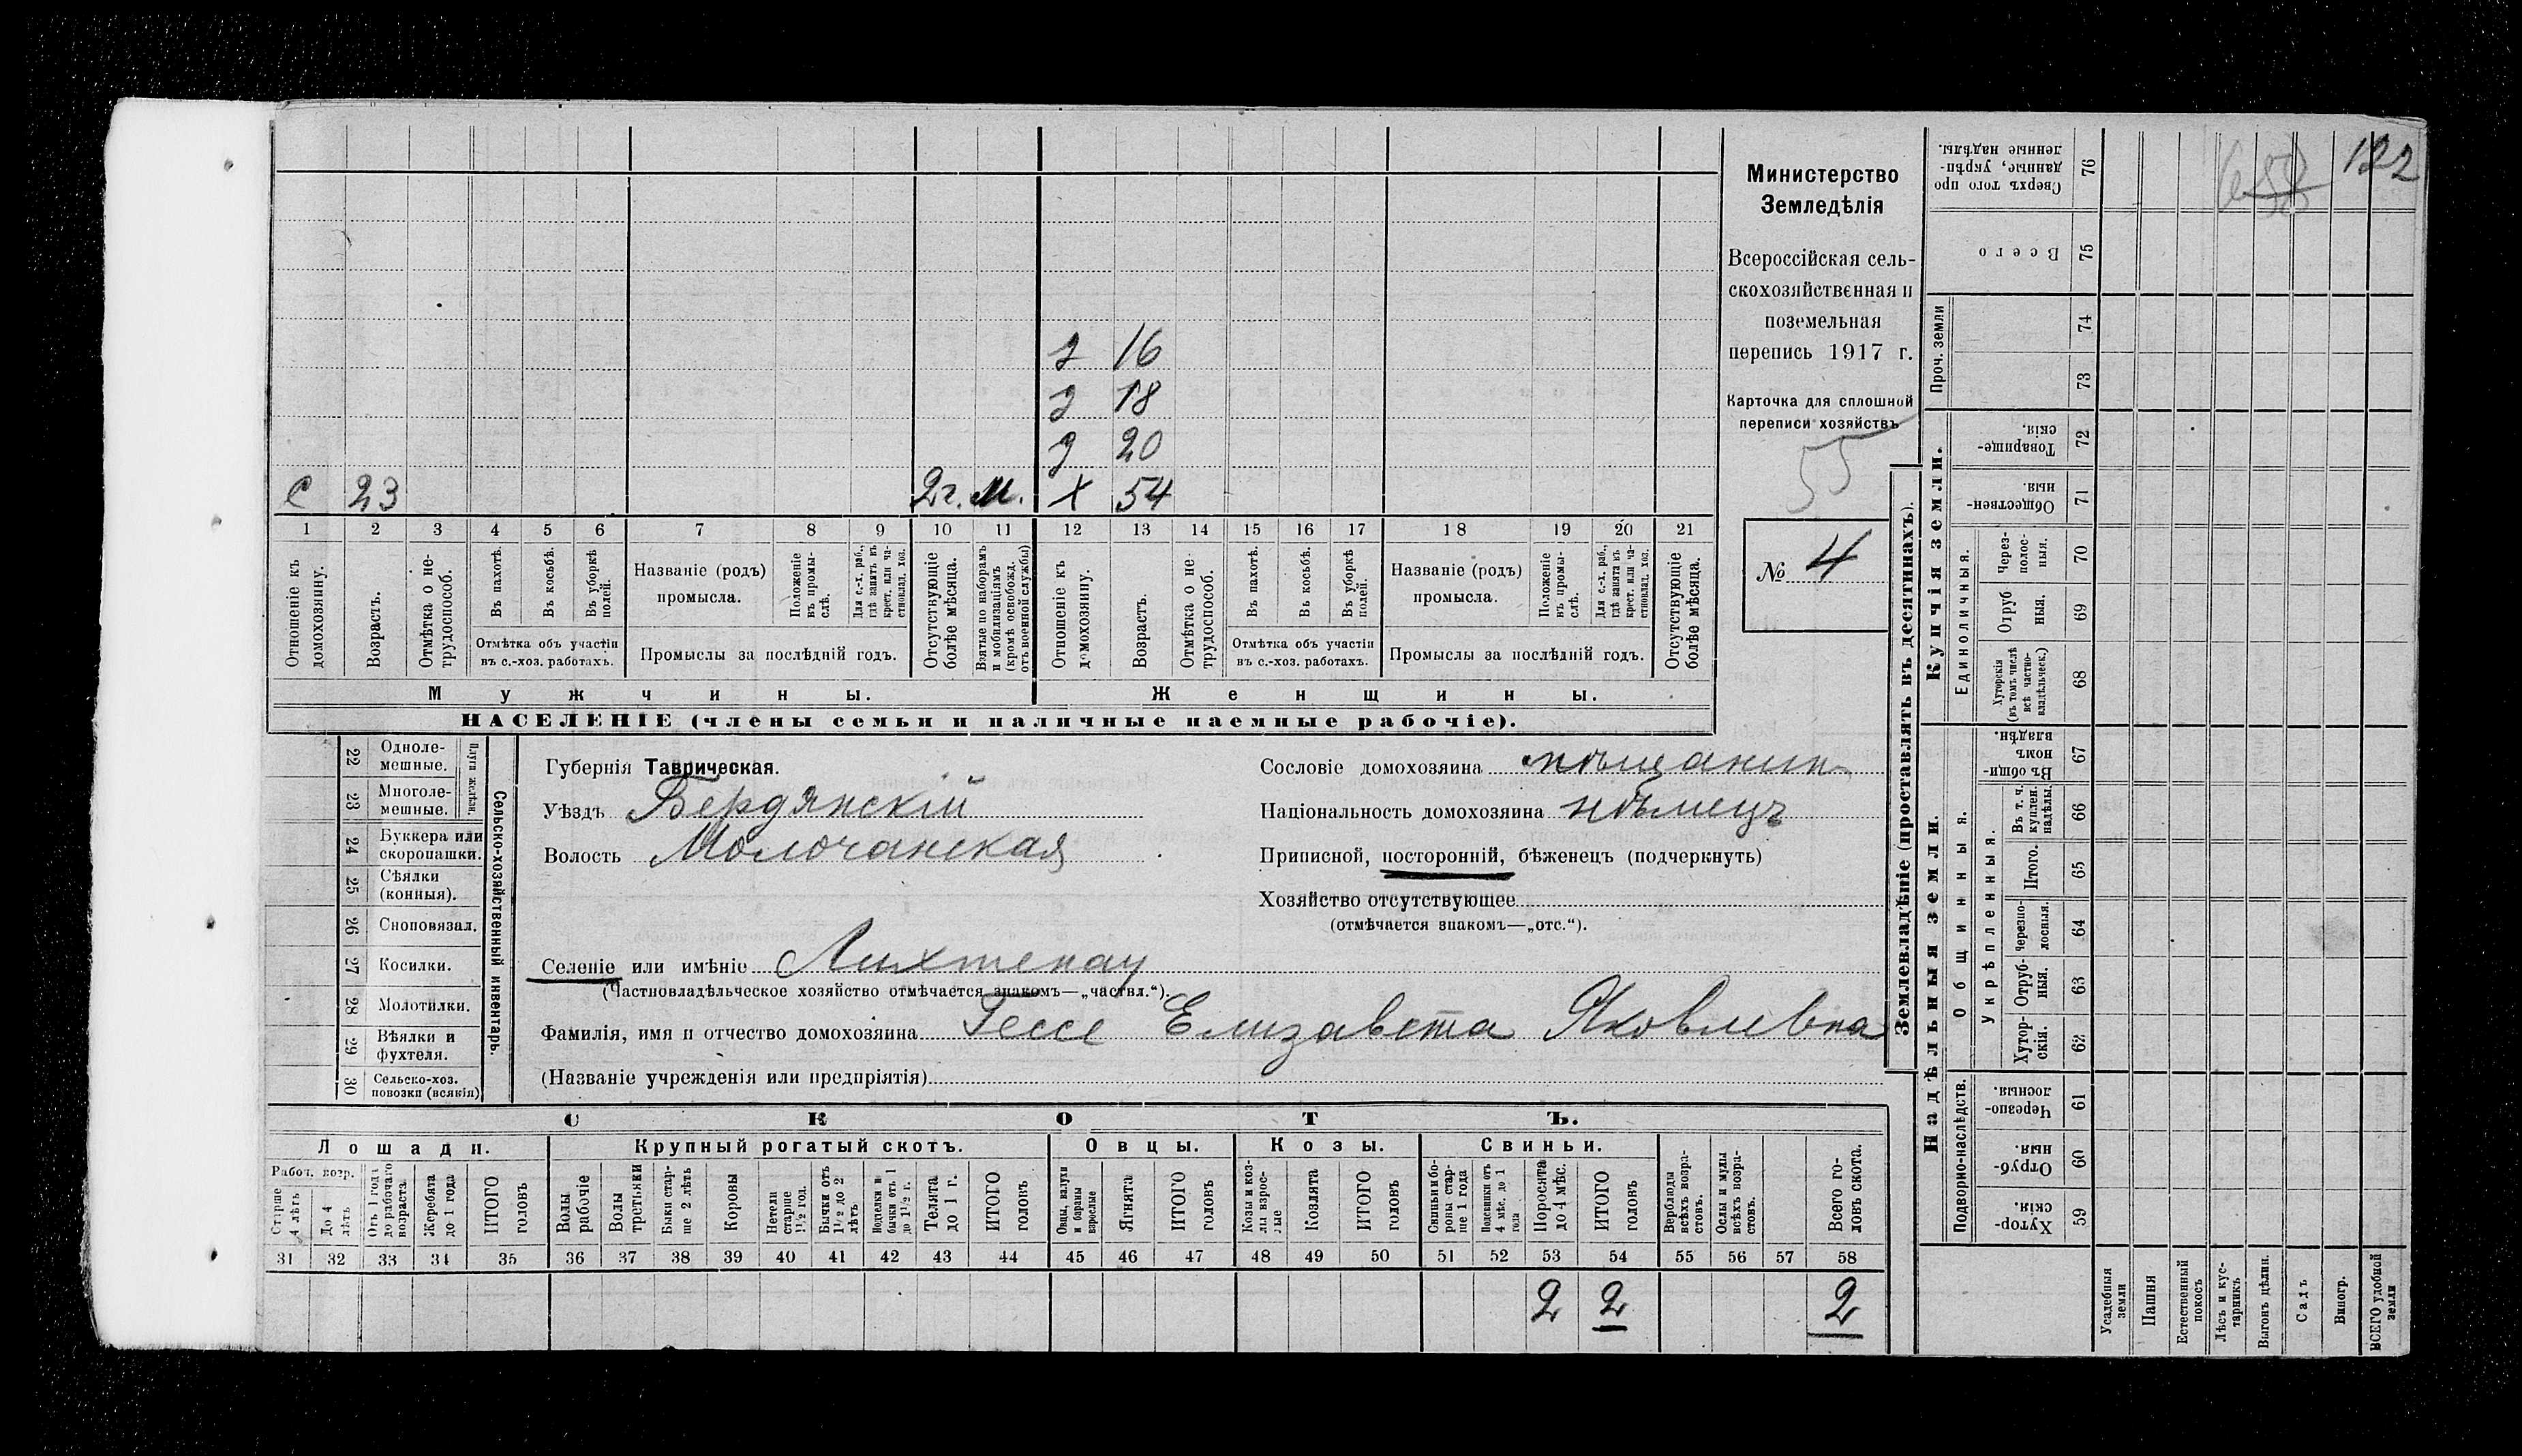 122
Министерство
Земледѣлія
Всероссійская сель-
скохозяйственная и
поземельная
перепись 1917 г.
Карточка для сплошной
переписи хозяйствъ
55
№ 4
2 16
2 18
2 20
С 23 2г. М. Х 54
1 2 3 4 5 6 7 8 9 10 11 12 13 14 15 16 17 18 19 20 21
Отношеніе къ домохозяину.
Возрастъ.
Отмѣтка о не-трудоспособ.
Въ пахотѣ.
Въ косьбѣ.
Въ уборкѣ полей.
Отмѣтка объ участіи
въ с.-хоз. работахъ.
Названіе (родъ)
промысла.
Положеніе въ промы-слѣ.
Для с.-х. раб., гдѣ занятъ въ крест. или ча-стновлад. хоз.
Промыслы за послѣдній годъ.
Отсутствующіе болѣе мѣсяца.
Взятые по наборамъ и мобилизаціямъ (кромѣ освобожд. отъ военной службы)
Отношеніе къ домохозяину.
Возрастъ.
Отмѣтка о не-трудоспособ.
Въ пахотѣ.
Въ косьбѣ.
Въ уборкѣ полей.
Отмѣтка объ участіи
въ с.-хоз. работахъ.
Названіе (родъ)
промысла.
Положеніе въ промы-слѣ.
Для с.-х. раб., гдѣ занята въ крест. или ча-стновлад. хоз.
Промыслы за послѣдній годъ.
Отсутствующіе болѣе мѣсяца.
Мужчины. Женщины.
НАСЕЛЕНІЕ (члены семьи и наличные наемные рабочіе).
Сельско-хозяйственный инвентарь.
22 Одноле-мешные.
23 Многоле-мешные.
24 Буккера или скоропашки.
25 Сѣялки (конныя).
26 Сноповязал.
27 Косилки.
28 Молотилки.
29 Вѣялки и фухтеля.
30 Сельско-хоз. повозки (всякія)
Губернія Таврическая.
Уѣздъ Бердянскій
Волость Молочанская
Селеніе или имѣніе Лихтенау
(Частновладѣльческое хозяйство отмѣчается знакомъ—„частвл.“).
Фамилія, имя и отчество домохозяина Гессе Елизавета Яковлевна
(Названіе учрежденія или предпріятія)
Сословіе домохозяина мѣщанин
Національность домохозяина нѣмецъ
Приписной, посторонній, бѣженецъ (подчеркнуть)
Хозяйство отсутствующее
(отмѣчается знакомъ—„отс.“).
СКОТЪ.
Лошади. Крупный рогатый скотъ. Овцы. Козы. Свиньи.
Рабоч. возр.
Старше 4 лѣтъ
До 4 лѣтъ
Отъ 1 года до рабочаго возраста
Жеребята до 1 года
ИТОГО головъ
Волы рабочіе
Волы третьяки
Быки стар-ше 2 лѣтъ
Коровы
Нетели старше 1½ год.
Бычки отъ 1½ до 2 лѣтъ
Подтелки и бычки отъ 1 до 1½ г.
Телята до 1 г.
ИТОГО головъ
Овцы, валухи и бараны взрослые
Ягнята
ИТОГО головъ
Козы и коз-лы взрос-лые
Козлята
ИТОГО головъ
Свиньи и бо-ровы стар-ше 1 года
Подсвинки отъ 4 мѣс. до 1 года
Поросята до 4 мѣс.
ИТОГО головъ
Верблюды всѣхъ возра-стовъ.
Ослы и мулы всѣхъ возра-стовъ.
Всего го-ловъ скота.
31 32 33 34 35 36 37 38 39 40 41 42 43 44 45 46 47 48 49 50 51 52 53 54 55 56 57 58
2 2 2
Землевладѣніе (проставлять въ десятинахъ).
Надѣльныя земли. Купчія земли. Проч. земли
Подворно-наслѣдств.
Общинныя.
Укрѣпленныя.
Единоличныя.
Сверхъ того про данные, укрѣп-ленные надѣлы. 76
Всего 75
74
73
Товарище-скія. 72
Обществен-ныя. 71
Через-полос-ныя. 70
Отруб ныя. 69
Хуторскія (въ томъ числѣ всѣ частно-владѣльческ.) 68
Въ общи-номъ владѣн. 67
Въ т. ч. куплен. надѣлы. 66
Итого. 65
Черезпо-лосныя. 64
Отруб-ныя. 63
Хутор-скія. 62
Черезпо-лосныя. 61
Отруб-ныя. 60
Хутор-скія. 59
Усадебныя земли
Пашня
Естественный покосъ
Лѣсъ и кус-тарникъ
Выгонъ цѣлин.
Садъ
Виногр.
ВСЕГО удобной земли